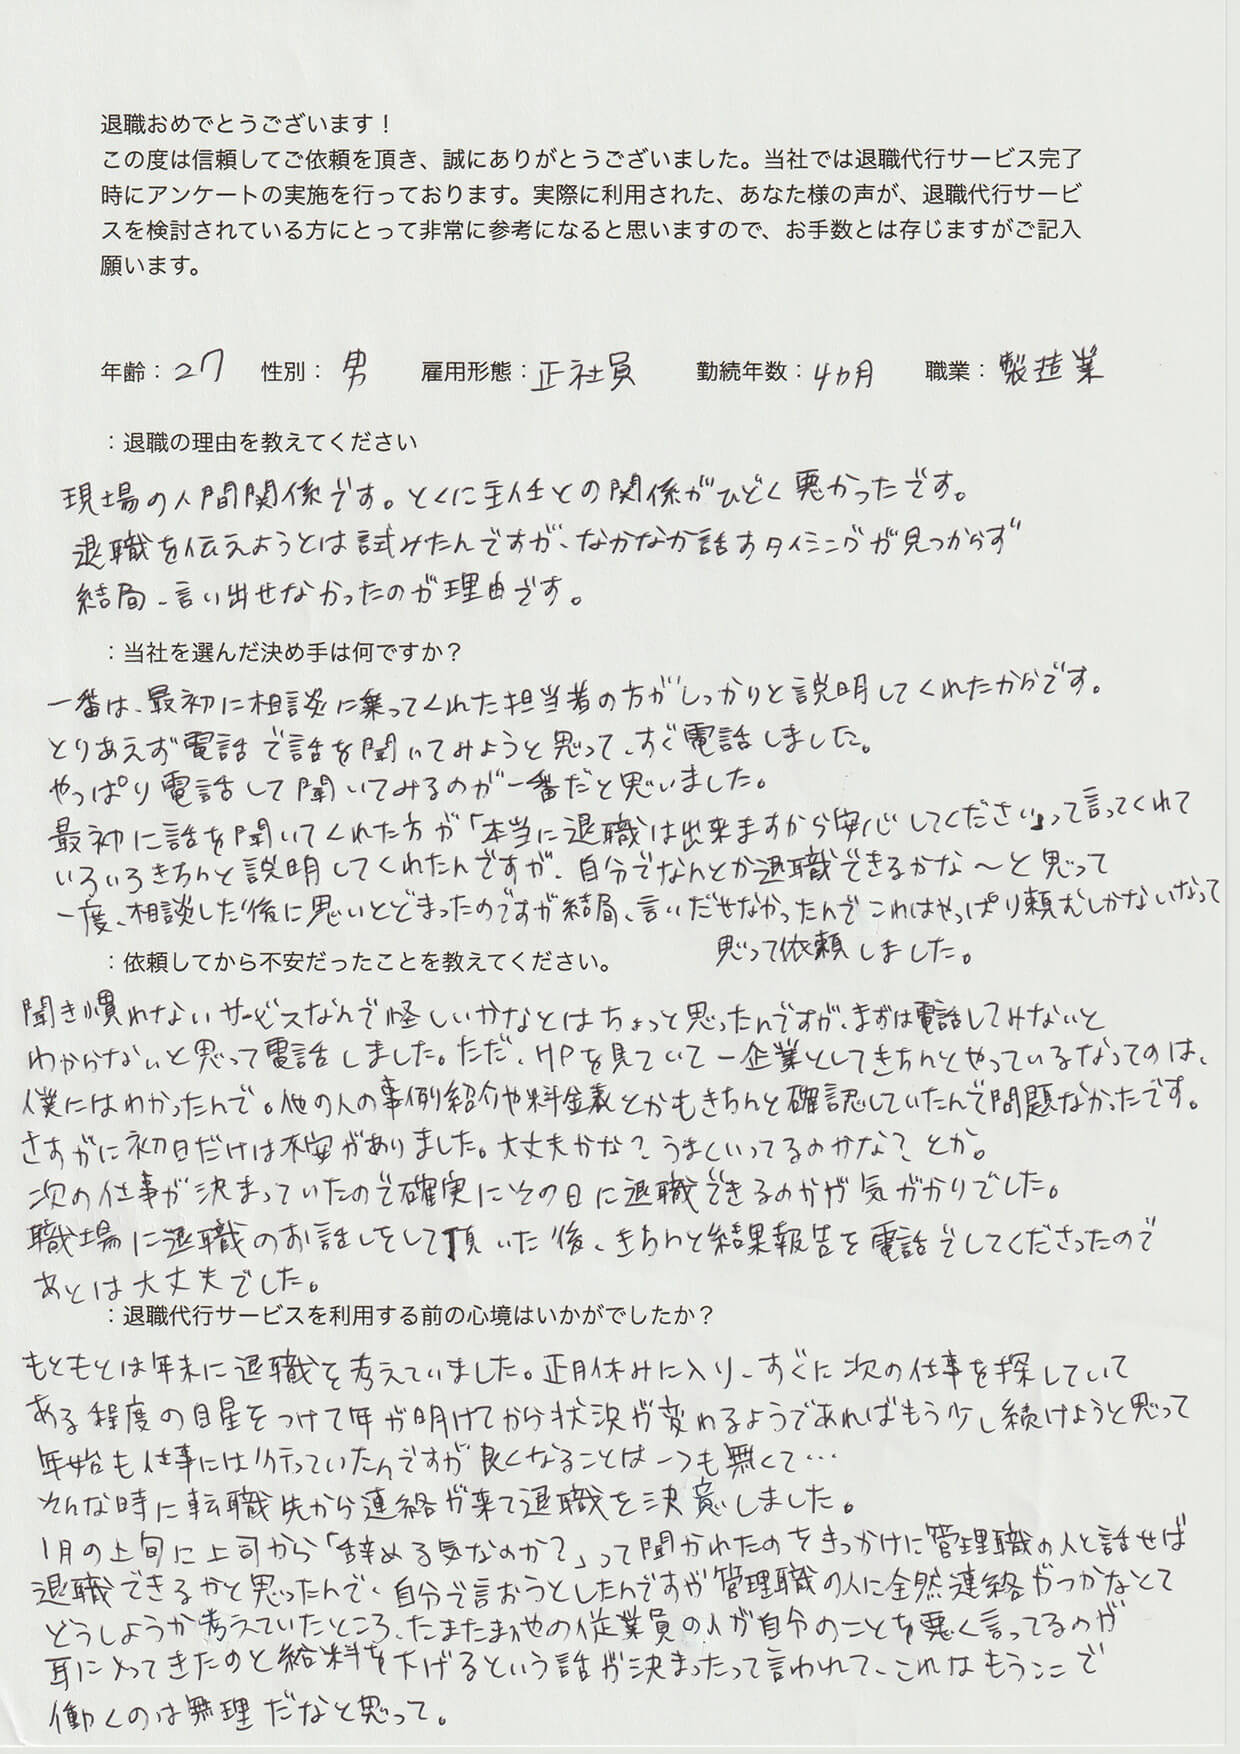 退職おめでとうございます！
この度は信頼してご依頼を頂き、誠にありがとうございました。当社では退職代行サービス完了
時にアンケートの実施を行っております。実際に利用された、あなた様の声が、退職代行サービ
スを検討されている方にとって非常に参考になると思いますので、お手数とは存じますがご記入
願います。
年齢：27 性別：男 雇用形態：正社員 勤続年数：4ヵ月 職業：製造業
：退職の理由を教えてください
現場の人間関係です。とくに主任との関係がひどく悪かったです。
退職を伝えようとは試みたんですが、なかなか話すタイミングが見つからず
結局、言い出せなかったのが理由です。
：当社を選んだ決め手は何ですか？
一番は、最初に相談に乗ってくれた担当者の方がしっかりと説明してくれたからです。
とりあえず電話で話を聞いてみようと思って、すぐ電話しました。
やっぱり電話して聞いてみるのが一番だと思いました。
最初に話を聞いてくれた方が「本当に退職は出来ますから安心してください」って言ってくれて
いろいろきちんと説明してくれたんですが、自分でなんとか退職できるかな〜と思って
一度、相談した後に思いとどまったのですが結局、言いだせなかったんでこれはやっぱり頼むしかないなって
思って依頼しました。
：依頼してから不安だったことを教えてください。
聞き慣れないサービスなんで怪しいかなとはちょっと思ったんですが、まずは電話してみないと
わからないと思って電話しました。ただ、HPを見ていて一企業としてきちんとやっているなってのは、
僕にはわかったんで。他の人の事例紹介や料金表とかもきちんと確認していたんで問題なかったです。
さすがに初日だけは不安がありました。大丈夫かな？うまくいってるのかな？とか。
次の仕事が決まっていたので確実にその日に退職できるのかが気がかりでした。
職場に退職のお話しをして頂いた後、きちんと結果報告を電話でしてくださったので
あとは大丈夫でした。
：退職代行サービスを利用する前の心境はいかがでしたか？
もともとは年末に退職を考えていました。正月休みに入り、すぐに次の仕事を探していて
ある程度の目星をつけて年が明けてから状況が変わるようであればもう少し続けようと思って
年始も仕事には行っていたんですが良くなることは一つも無くて…
そんな時に転職先から連絡が来て退職を決意しました。
1月の上旬に上司から「辞める気なのか？」って聞かれたのをきっかけに管理職の人と話せば
退職できるかと思ったんで、自分で言おうとしたんですが管理職の人に全然連絡がつかなくて
どうしようか考えていたところ、たまたま他の従業員の人が自分のことを悪く言ってるのが
耳に入ってきたのと給料を下げるという話が決まったって言われて、これはもうここで
働くのは無理だなと思って。